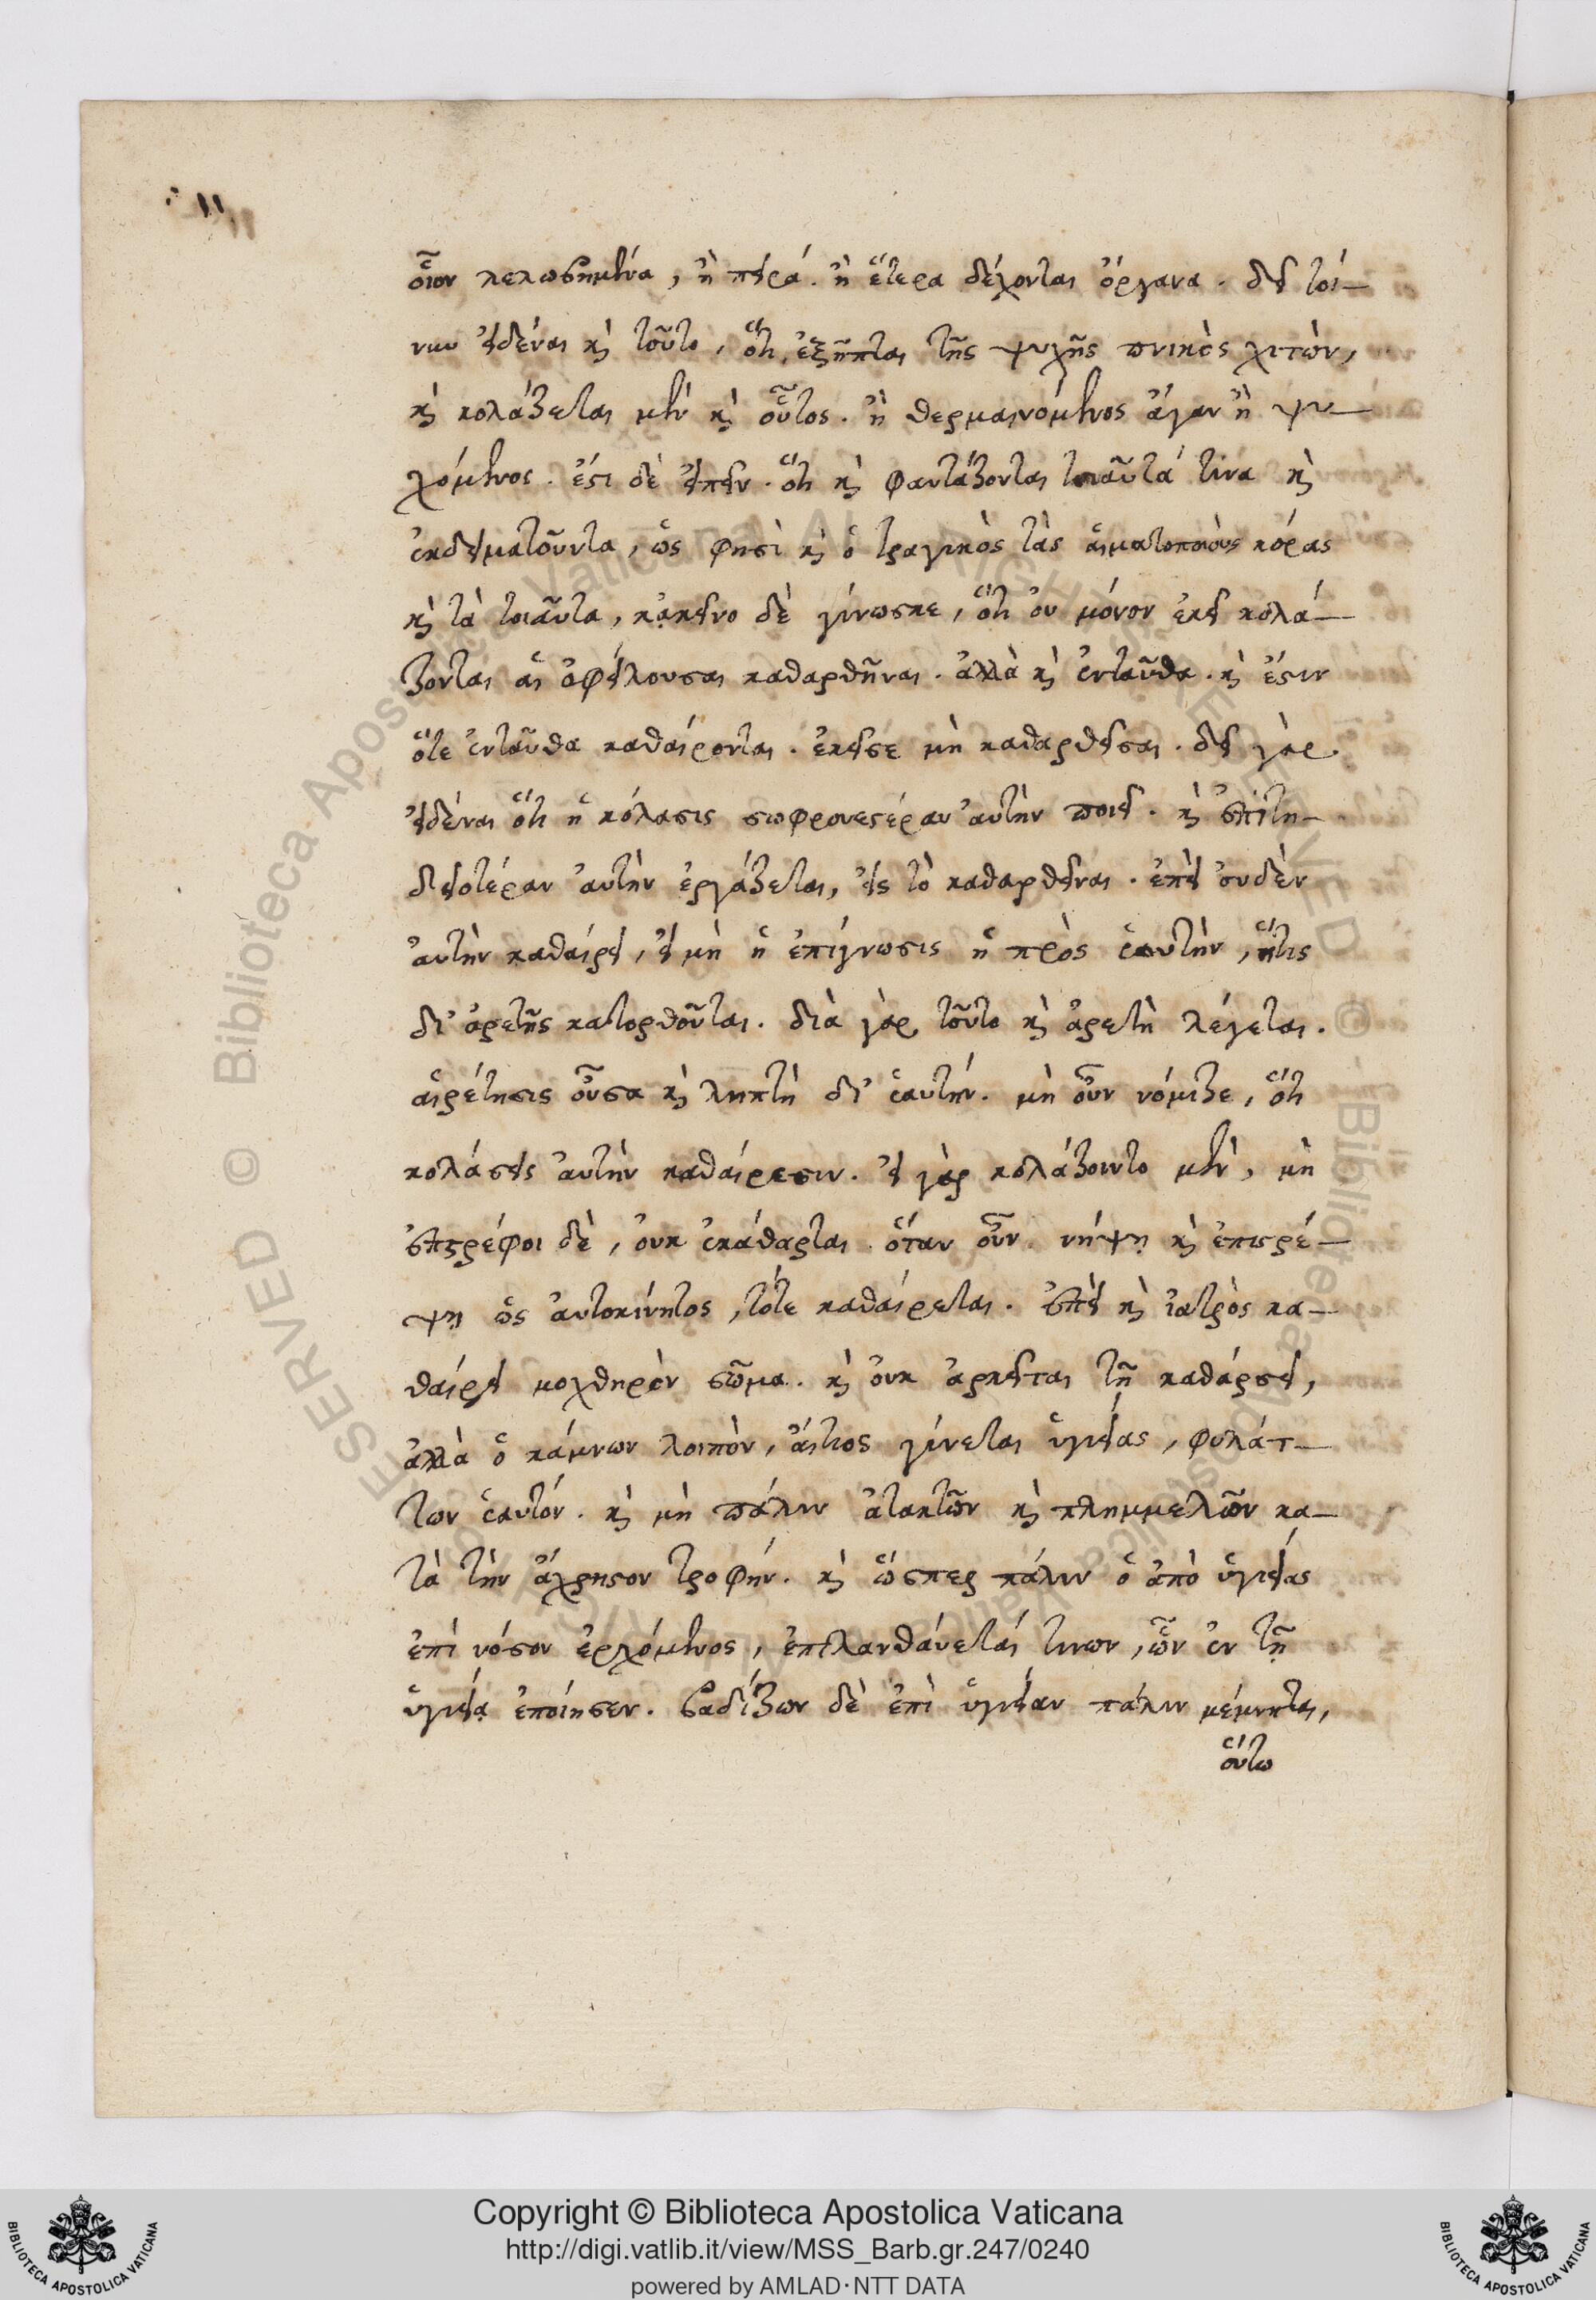 οἷον λελωβημένα, ἢ πηρά. ἢ ἕτερα δέχονται ὄργανα. δεῖ τοί-
νυν εἰδέναι καὶ τοῦτο, ὅτι ἐξῆπται τῆς ψυχῆς πνικὸς χιτὼν,
καὶ κολάζεται μὲν καὶ οὗτος. ἢ θερμαινόμενος ἄγαν ἢ ψυ-
χόμενος. ἔστι δὲ εἰπεῖν. ὅτι καὶ φαντάζονται τοιαῦτά τινα καὶ
ἐκδειματοῦντα, ὥς φησὶ καὶ ὁ τραγικὸς τὰς αἱματοποιοὺς κόρας
καὶ τὰ τοιαῦτα, κᾀκεῖνο δὲ γίνωσκε, ὅτι οὐ μόνον ἐκεῖ κολά-
ζονται αἱ ὀφείλουσαι καθαρθῆναι. ἀλλὰ καὶ ἐνταῦθα. καὶ ἔστιν
ὅτε ἐνταῦθα καθαίρονται. ἐκεῖσε μὴ καθαρθεῖσαι. δεῖ γὰρ
εἰδέναι ὅτι ἡ κόλασις σωφρονεστέραν αὐτὴν ποιεῖ. καὶ ἐπιτη-
δειοτέραν αὐτὴν ἐργάζεται, εἰς τὸ καθαρθεῖναι. ἐπεὶ οὐδὲν
αὐτὴν καθαίρει, εἰ μὴ ἡ ἐπίγνωσις ἡ πρὸς ἑαυτὴν, ἥτις
δι' ἀρετῆς κατορθοῦται. διὰ γὰρ τοῦτο καὶ ἀρετὴ λέγεται.
αἱρέτησις οὖσα καὶ ληπτὴ δι' ἑαυτήν. μὴ οὖν νόμιζε, ὅτι
κολάσεις αὐτὴν καθαίρεσιν. εἰ γὰρ κολάζοιντο μὲν, μὴ
ἐπιστρέφοι δὲ, οὐκ ἐκάθαρται. ὅταν οὖν νήψῃ καὶ ἐπιστρέ-
ψῃ ὡς αὐτοκίνητος, τότε καθαίρεται. ἐπεὶ καὶ ἰατρὸς κα-
θαίρει μοχθηρὸν σῶμα. καὶ οὐκ ἀρκεῖται τῇ καθάρσει,
ἀλλὰ ὁ κάμνων λοιπὸν, αἴτιος γίνεται ὑγιείας, φυλάτ-
των ἑαυτόν. καὶ μὴ πάλιν ἀτακτῶν καὶ πλημμελῶν κα-
τὰ τὴν ἄχρηστον τροφήν. καὶ ὥσπερ πάλιν ὁ ἀπὸ ὑγιείας
ἐπὶ νόσον ἐρχόμενος, ἐπιλανθάνεταί τινων, ὧν ἐν τῇ
ὑγιείᾳ ἐποίησεν. βαδίζων δὲ ἐπὶ ὑγιείαν πάλιν μέμνηται,
οὕτω
Copyright © Biblioteca Apostolica Vaticana
http://digi.vatlib.it/view/MSS_Barb.gr.247/0240
powered by AMLAD·NTT DATA